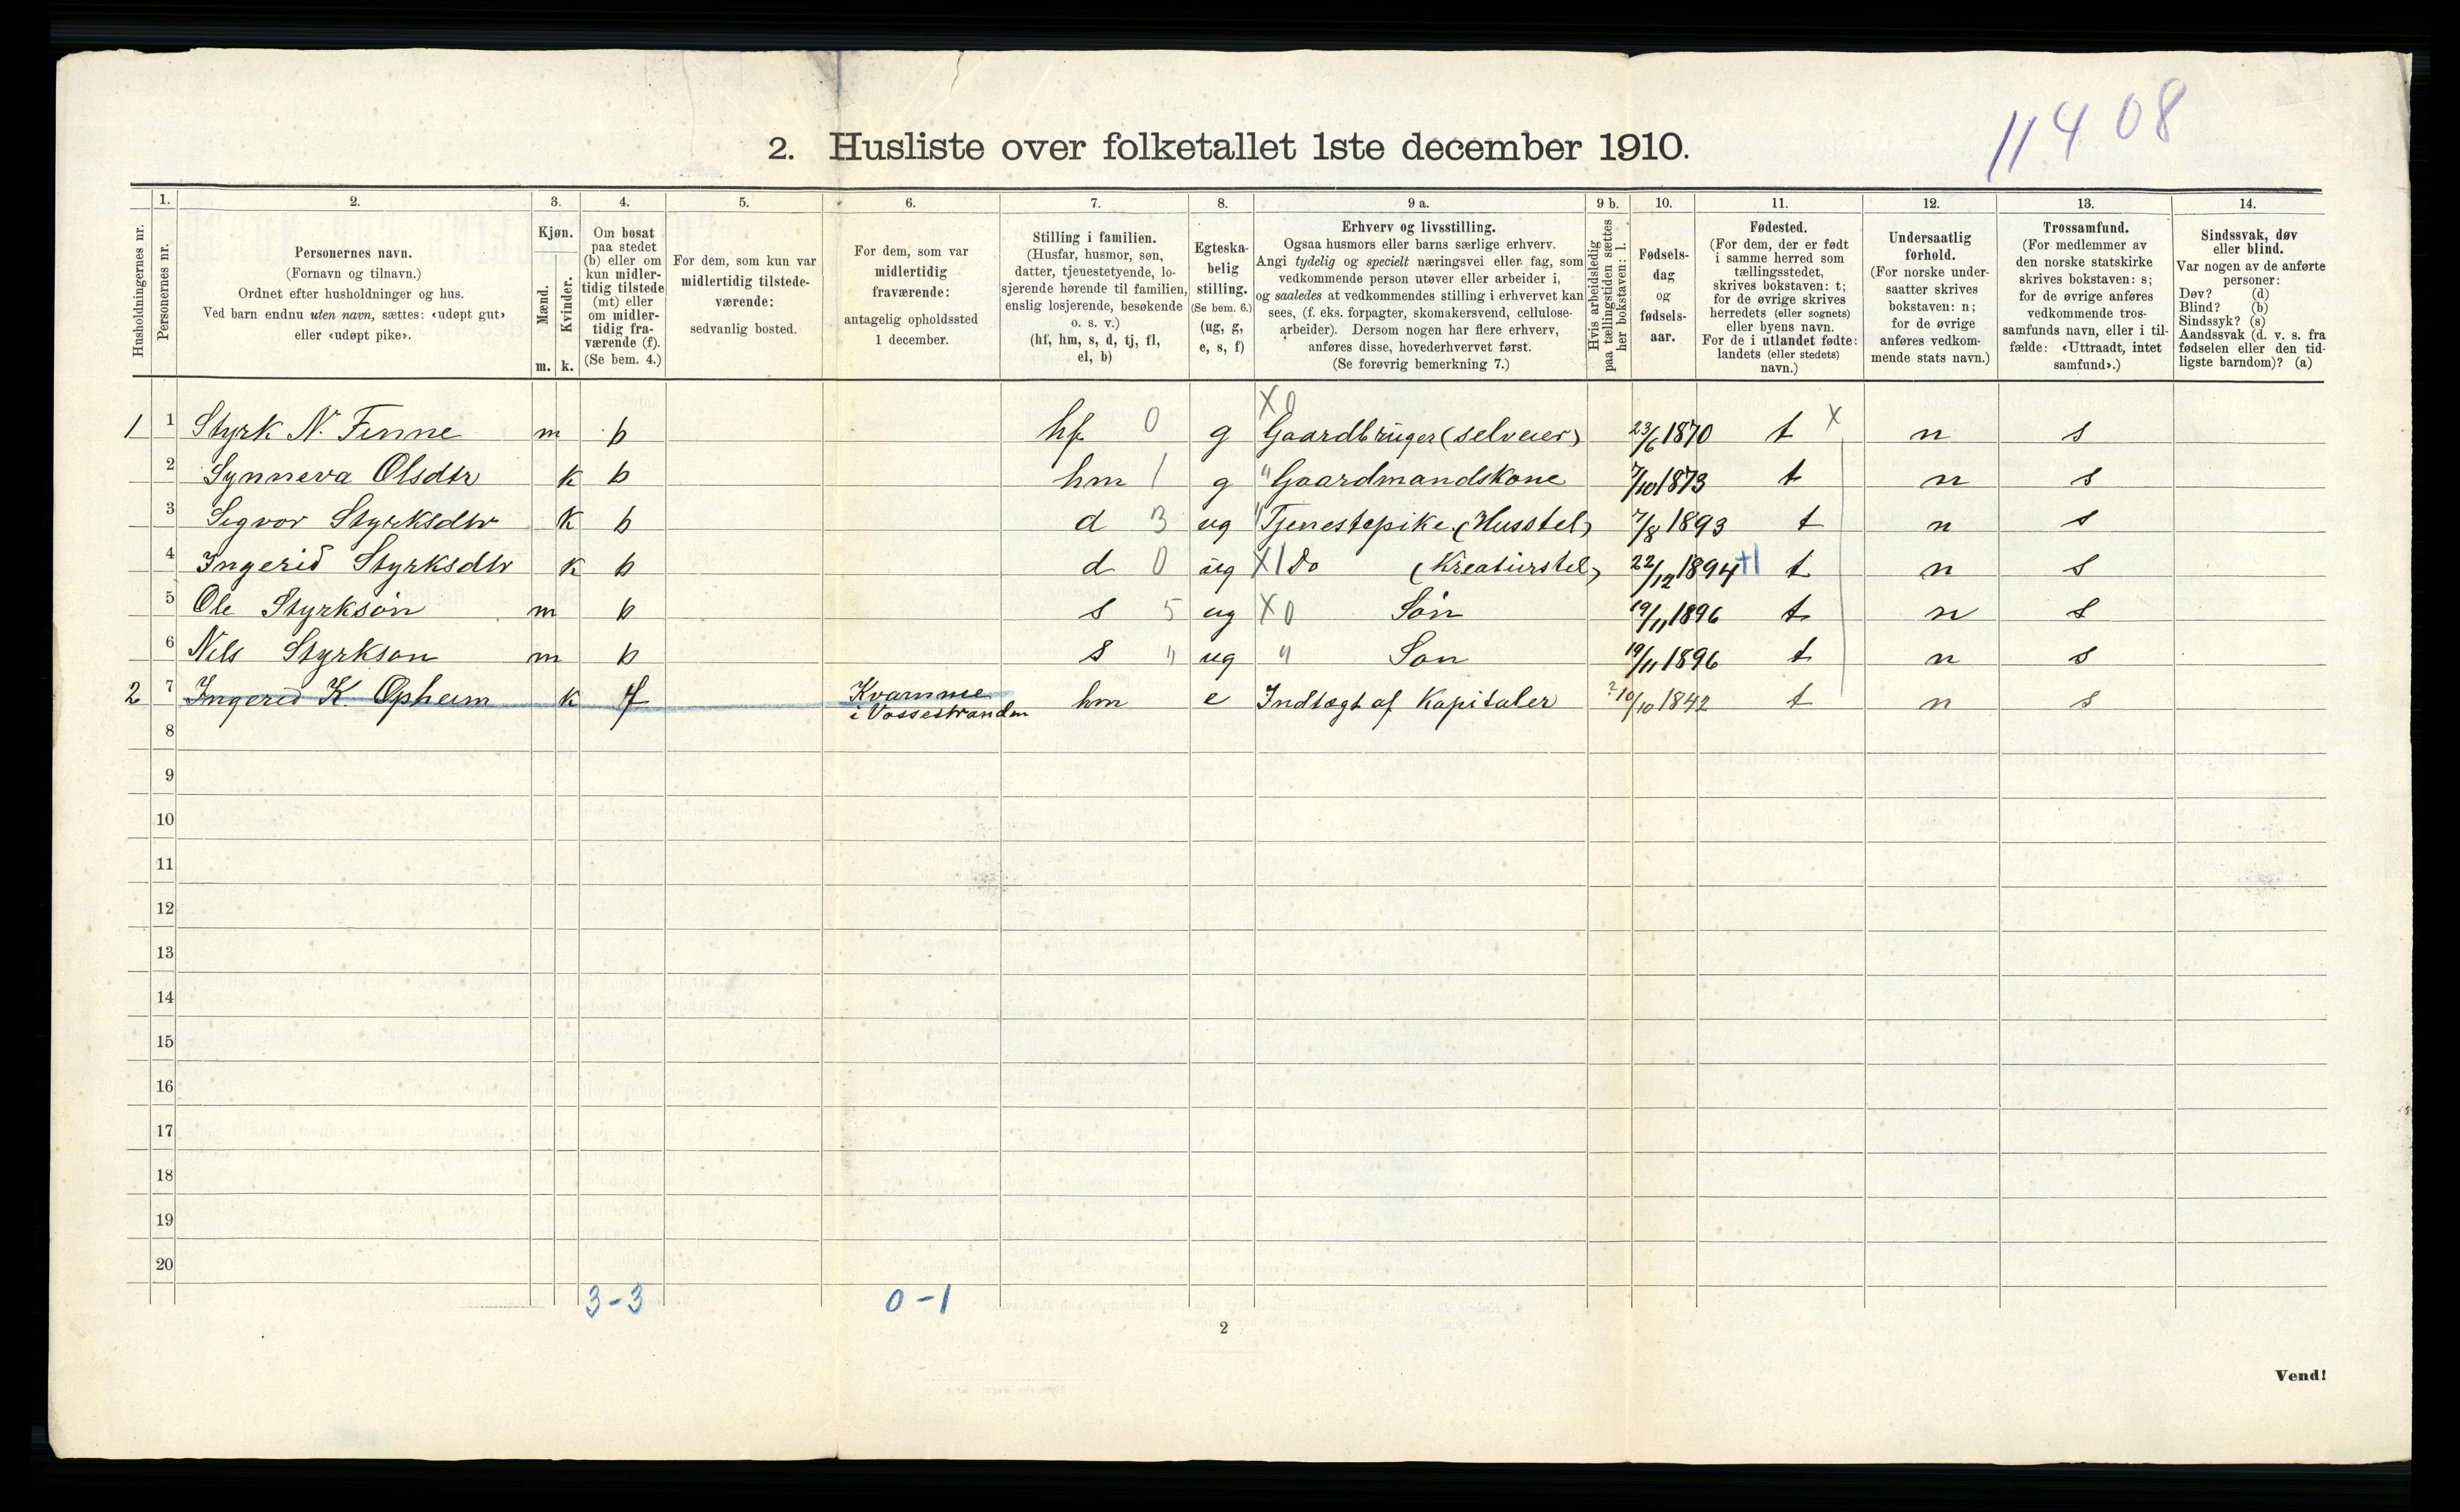 1408
2. Husliste over folketallet 1ste december 1910.
Husholdningernes nr.
1.
Personernes nr.
2.
Personernes navn.
(Fornavn og tilnavn.)
Ordnet efter husholdninger og hus.
Ved barn endnu uten navn, sættes: «udøpt gut»
eller «udøpt pike».
3.
Kjøn.
Mænd.
Kvinder.
m. k.
4.
Om bosat
paa stedet
(b) eller om
kun midler-
tidig tilstede
(mt) eller
om midler-
tidig fra-
værende (f).
(Se bem. 4.)
5.
For dem, som kun var
midlertidig tilstede-
værende:
sedvanlig bosted.
6.
For dem, som var
midlertidig
fraværende:
antagelig opholdssted
1 december.
7.
Stilling i familien.
(Husfar, husmor, søn,
datter, tjenestetyende, lo-
sjerende hørende til familien,
enslig losjerende, besøkende
o. s. v.)
(hf, hm, s, d, tj, fl,
el, b)
8.
Egteska-
belig
stilling.
(Se bem. 6.)
(ug, g,
e, s, f)
9 a.
Erhverv og livsstilling.
Ogsaa husmors eller barns særlige erhverv.
Angi tydelig og specielt næringsvei eller fag, som
vedkommende person utøver eller arbeider i,
og saaledes at vedkommendes stilling i erhvervet kan
sees, (f. eks. forpagter, skomakersvend, cellulose-
arbeider). Dersom nogen har flere erhverv,
anføres disse, hovederhvervet først.
(Se forøvrig bemerkning 7.)
9 b.
Hvis arbeidsledig
paa tællingstiden sættes
her bokstaven: l.
10.
Fødsels-
dag
og
fødsels-
aar.
11.
Fødested.
(For dem, der er født
i samme herred som
tællingsstedet,
skrives bokstaven: t;
for de øvrige skrives
herredets (eller sognets)
eller byens navn.
For de i utlandet fødte:
landets (eller stedets)
navn.)
12.
Undersaatlig
forhold.
(For norske under-
saatter skrives
bokstaven: n;
for de øvrige
anføres vedkom-
mende stats navn.)
13.
Trossamfund.
(For medlemmer av
den norske statskirke
skrives bokstaven: s;
for de øvrige anføres
vedkommende tros-
samfunds navn, eller i til-
fælde: «Uttraadt, intet
samfund».)
14.
Sindssvak, døv
eller blind.
Var nogen av de anførte
personer:
Døv? (d)
Blind? (b)
Sindssyk? (s)
Aandssvak (d. v. s. fra
fødselen eller den tid-
ligste barndom)? (a)
X0
1 1 Styrk N. Finne m b hf 0 g Gaardbruger (selveier) 23/6 1870 t X n s
2 Synneva Olsdtr k b hm 1 g " Gaardmandskone 7/10 1873 t n s
3 Sigvor Styrksdtr k b d 3 ug " Tjenestepike (Husstel) 7/8 1893 t n s
4 Ingerid Styrksdtr k b d 0 ug X1 Do (Kreaturstel) 22/12 1894 +1 t n s
5 Ole Styrksón m b s 5 ug X0 Són 19/11 1896 t n s
6 Nils Styrkson m b s " ug " Son 19/11 1896 t n s
2 7 Ingerid K. Opheim k f Kvamme hm e Indtægt af Kapitaler ? 10/10 1842 t n s
i Vossestranden
8
9
10
11
12
13
14
15
16
17
18
19
20
3-3 0-1
2
Vend!